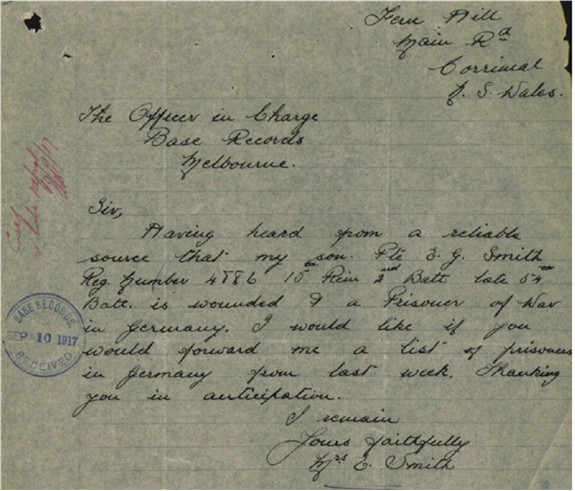 Fern Hill
Main Rd
Corrimal
N. S. Wales.
The Officer in Charge
Base Records
Melbourne.
Sir,
Having heard from a reliable
source that my son. Pte E. G. Smith
Reg Number 4886 15th Rein 2nd Batt. late 54th
Batt. is wounded & a Prisoner of War
in Germany. I would like if you
would forward me a list of prisoners
in Germany from last week. Thanking
you in anticipation.
I remain
Yours faithfully
Mrs E. Smith
BASE RECORDS
SEP 10 1917
RECEIVED